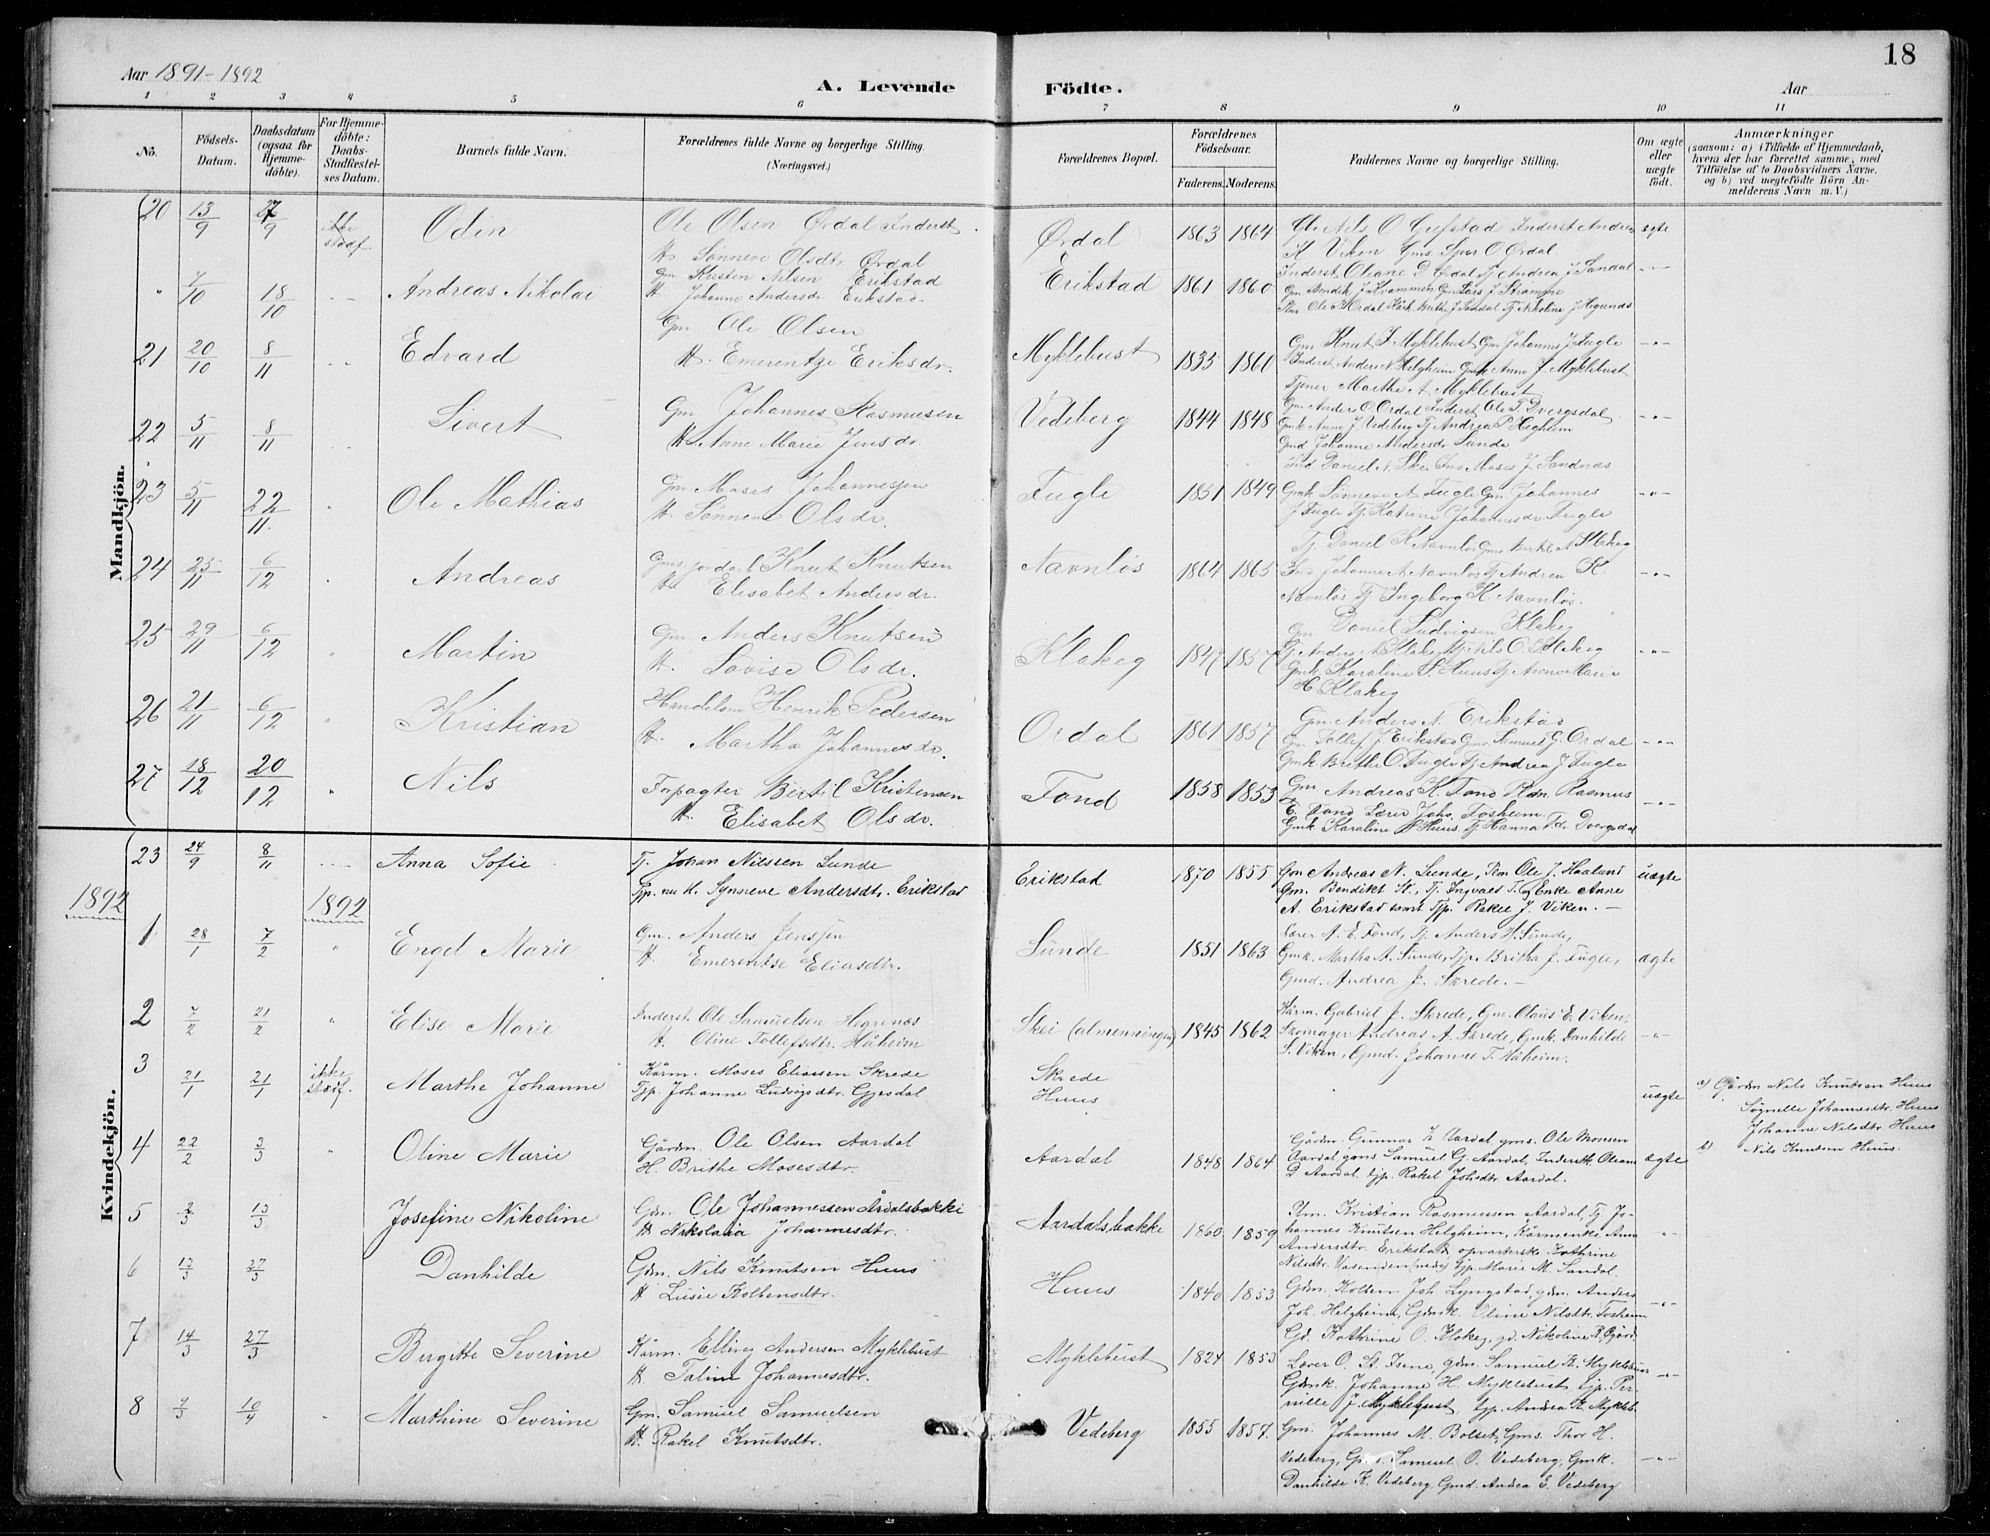 18
Aar 1891-1892
A. Levende Födte.
Aar
1 2 3 4 5 6 7 8 9 10 11
No.
Födsels-Datum.
Daabsdatum (ogsaa for Hjemmedöbte).
For Hjemmedöbte: Daabs-Stadfæstelses Datum.
Barnets fulde Navn.
Forældrenes fulde Navne og borgerlige Stilling. (Næringsvei.)
Forældrenes Bopæl.
Forældrenes Födselsaar.
Faderens. Moderens.
Faddernes Navne og borgerlige Stilling.
Om ægte eller uægte födt.
Anmærkninger (saasom: a) i Tilfælde af Hjemmedaab, hvem der har forrettet samme, med Tilföielse af to Daabsvidners Navne, og b) ved uægtefödte Börn Anmelderens Navn m. V.)
Mandkjön.
20 13/9 27/9 ikke stadf. Odin
Ole Olsen Ørdal Inderst
H. Sønneve Olsdtr Ørdal
Ørdal 1863 1864
Nils O Grefstad Inderst Andrea
H Viken Gms Sjur O Ørdal
Inderst Oliane D Ørdal Tj Andrea J Sandal
ægte
" 7/10 18/10 Andreas Nikolai
Gm Kristen Nilsen Erikstad
H. Johanne Andersdr Erikstad
Erikstad 1861 1860
Gm Bendik J Kvammen Gm Lars J Strømme
21 20/10 8/11 Edvard
Gm Ole Olsen
H. Emerentze Eriksdr.
Myklebust 1835 1860
Gm Knut J Myklebust Gm Johannes J Fugle
Inderst Anders N Helgheim Gmk Anne J Myklebust
Tjener Marthe A. Myklebust
22 5/11 8/11 Sivert
Gm Johannes Rasmusen
H. Anne Marie Jensdr
Vedeberg 1844 1848
Gm Anders O. Ørdal Inderst Ole T. Dvergsdal
Gmk Anne J. Vedeberg Tj Andrea P Hegheim
Gmd Johanne Andersdr Sunde
23 5/11 22/11 Ole Mathias
Gm Moses Johannessen
H. Sønneve Olsdr.
Fugle 1851 1849
Ind Daniel N. Skei Ind Moses J Sandnæs
Gmk Sønneve A Fugle Gm Johannes
J Fugle Tj Katrine Johannesdr Fugle
24 25/11 6/12 Andreas
Knut Knutsen
H. Elisabet Andersdr.
Navnløs 1864 1865
Tj Daniel K Navnløs Gms Bertil A Klakeg
Ind Johanne A Navnløs Tj Andrea K.
Navnløs Tj Ingeborg K. Navnløs.
25 29/11 6/12 Martin
Gm Anders Knutsen
H. Lovise Olsdr.
Klakeg 1847 1857
Gm Daniel Ludvigsen Klakeg
Tj Anders A Klakeg Tj Nils O. Klakeg
Gmk Karoline S. Huus Tj Anne Marie
H Klakeg
26 21/11 6/12 Kristian
Handelsm Henrik Pedersen
H. Martha Johannesdr.
Ordal 1861 1857
Gm Anders N. Erikstad
Gm Tollef J Erikstad Gms Samuel G. Ordal
Gmk Brithe O Fugle Tj Andrea J Fugle
27 18/12 20/12 Nils
Forpagter Bertil Kristensen
H. Elisabet Olsdr.
Fond 1858 1853
Gm Andreas K. Fond Rasmus
E. Fond Lærer Johs. Fosheim
Gmk Karoline S Huus, Tj Hanna Dvergsdal
Kvindekjön.
23 24/9 8/11 Anna Sofie
Tj. Johan Nilssen Sunde
Tjp. nu H. Synneve Andersdtr. Erikstad
Erikstad 1870 1855
Gm Andreas N. Sunde, Ole J. Haaland
Gm. Bendikt St., Tj. Ingvald T. Enke Anne
A. Erikstad samt Tjp. Rakel J. Viken. —
uægte
1892 1892
1 28/1 7/2 Engel Marie
Gm. Anders Jensen
H. Emerentse Eliasdtr.
Sunde 1851 1863
Lærer A. E. Fond, Tj. Anders H. Sunde,
Gmk. Martha A. Sunde, Tjp. Britha J. Fugle,
Gmd. Andrea J. Skrede. —
ægte
2 7/2 21/2 Elise Marie
Inderst. Ole Samuelsen Hegrenæs
H. Oline Tollefsdtr. Håheim
Skei (almenningen) 1845 1862
Kårm. Gabriel J. Skrede, Gm. Olaus E. Viken,
Skomager Andreas A. Skrede, Gmk. Danhilde
S. Viken, Gmd. Johanne T. Håheim.
3 21/1 21/1 ikke stadf. Marthe Johanne
Kårm. Moses Eliassen Skrede
Tjp. Johanne Ludvigsdtr. Gjesdal
Skrede
Huus
uægte
a) Gårdm Nils Knutsen Huus
Søgnille Johannesdtr. Huus
Johanne Nilsdtr. Huus
b) Nils Knutsen Huus.
4 22/2 3/3 Oline Marie
Gårdm. Ole Olsen Aardal
H. Brithe Mosesdtr.
Aardal 1848 1864
Gårdm. Gunnar L. Aardal, gms. Ole Monsen
Aardal, gms Samuel G. Aardal, Inderstk. Oleane
D. Aardal, tjp. Rakel Johsdtr. Aardal.
ægte
5 2/3 13/3 Josefine Nikoline
Gdm. Ole Johannessen Årdalsbakke
H Nikolaia Johannesdtr.
Aardalsbakke 1860 1859
Kristian Rasmussen Aardal, Tj. Jo-
hannes Knutsen Helgheim, Kårmenke Anna
Andersdtr. Erikstad, opvarterske Kathrine
Nilsdtr. Vasenden (nedr) Tjp. Marie M. Sandal.
6 13/3 27/3 Danhilde
Gdm. Nils Knutsen Huus
H Lusie Kolbensdtr.
Huus 1840 1853
Gdm. Kolben Joh. Lyngstad, gdm. Anders
Joh. Helgheim, Gdmk. Oline Nilsdtr. Fosheim
Gd. Kathrine O. Klakeg, gd. Nikoline R.
7 14/3 27/3 Birgitte Severine
Kårm. Elling Andersen Myklebust
H Taline Johannesdtr.
Myklebust 1824 1853
Lærer O. St. Isene, gdm. Samuel K. Myklebust
Gdmk. Johanne H. Myklebust, tjp. Per-
nille J. Myklebust, tjp. Andrea K. Mykleb.
8 9/3 10/4 Marthine Severine
Gm. Samuel Samuelsen
H. Rakel Knutsdtr.
Vedeberg 1855 1857
Gm. Johannes M. Bolset, Gms. Thor H.
Vedeberg, Samuel O. Vedeberg, Gmk.
Danhilde K. Vedeberg Gmd. Andrea E. Vedeberg